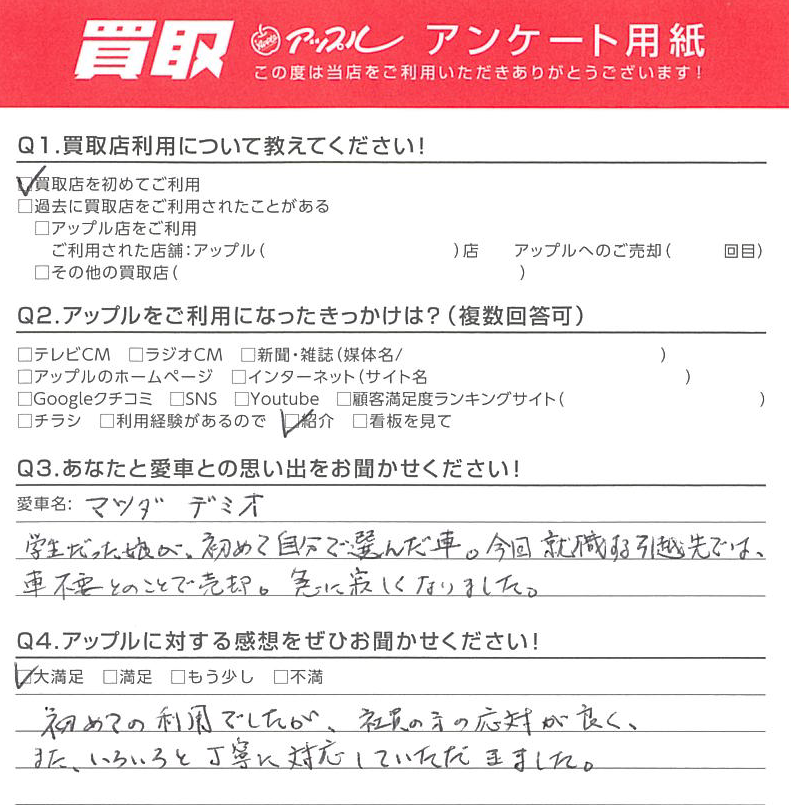 買取 Apple アップル アンケート用紙
この度は当店をご利用いただきありがとうございます!
Q1.買取店利用について教えてください!
☑買取店を初めてご利用
□過去に買取店をご利用されたことがある
□アップル店をご利用
ご利用された店舗:アップル( )店 アップルへのご売却( 回目)
□その他の買取店( )
Q2.アップルをご利用になったきっかけは?(複数回答可)
□テレビCM □ラジオCM □新聞・雑誌(媒体名/ )
□アップルのホームページ □インターネット(サイト名 )
□Googleクチコミ □SNS □Youtube □顧客満足度ランキングサイト( )
□チラシ □利用経験があるので ☑紹介 □看板を見て
Q3.あなたと愛車との思い出をお聞かせください!
愛車名: マツダ デミオ
学生だった娘が、初めて自分で選んだ車。今回就職する引越先では、
車不要とのことで売却。急に寂しくなりました。
Q4.アップルに対する感想をぜひお聞かせください!
☑大満足 □満足 □もう少し □不満
初めての利用でしたが、社員の方の応対が良く、
また、いろいろと丁寧に対応していただきました。